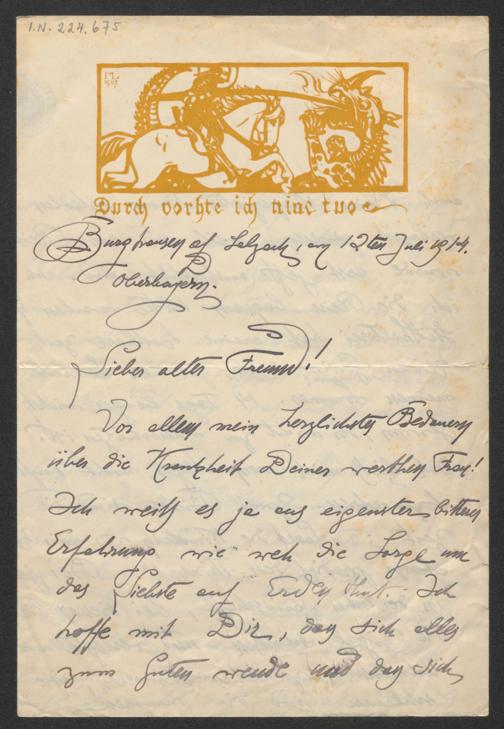 I.N. 224.675
Durch vorhte ich nine tuo
Burghausen a/ Salzach, am 12ten Juli 1914.
Oberbayern.
Lieber alter Freund!
Vor allem mein herzlichstes Bedauern
über die Krankheit Deiner werthen Frau!
Ich weiß es ja aus eigenster bitterer
Erfahrung wie weh die Sorge um
das Liebste auf Erden thut. Ich
hoffe mit Dir, daß sich alles
zum Guten wende und daß sich